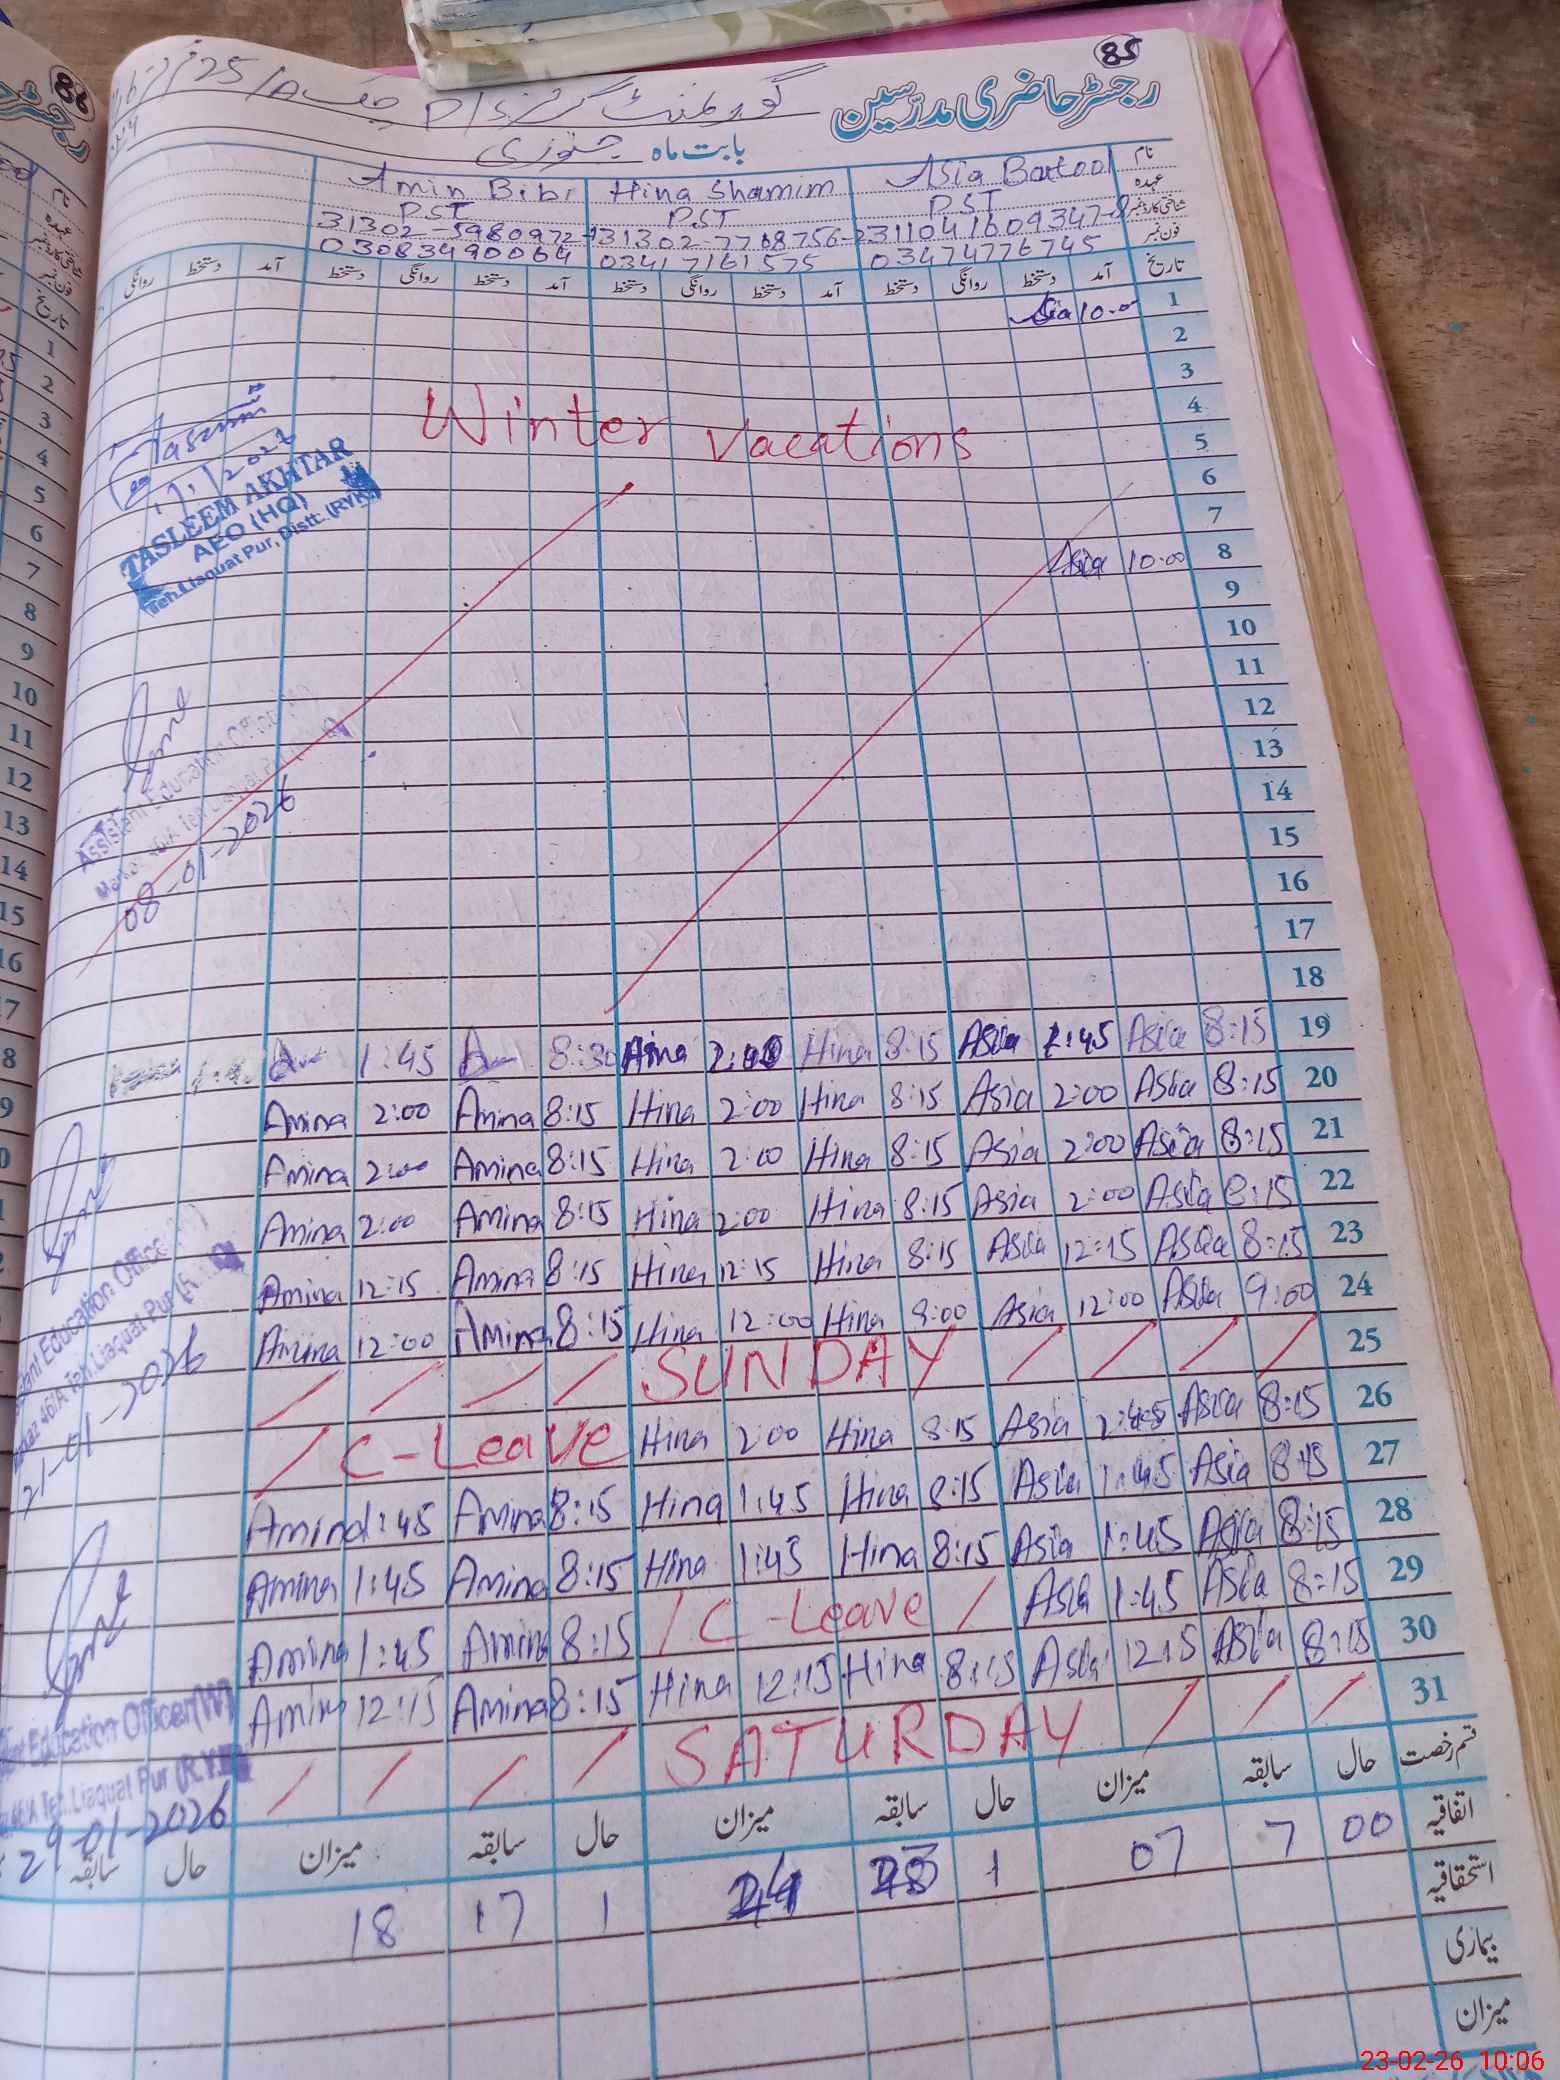 85
رجسٹر حاضری مدرسین گورنمنٹ گرلز P/S چک 25/A
بابت ماہ جنوری
نام Asia Batool Hina Shamim Amin Bibi
عہدہ PST PST PST
شناختی کارڈ نمبر
فون نمبر 03474776745 03417161575 03083490064
تاریخ آمد دستخط روانگی دستخط آمد دستخط روانگی دستخط آمد دستخط روانگی دستخط آمد دستخط روانگی
1 10.00 Asia
2
3
4
Winter Vacations
5
6
7
8 10.00 Asia
9
10
11
12
13
14
15
16
17
18
TASLEEM AKHTAR
AEO (HQ)
Teh. Liaquat Pur, Distt. (RYK)
Assistant Education Officer
08-01-2026
19 8:15 Asia 1:45 Asia 8:15 Hina Hina 8:30 1:45
20 8:15 Asia 2:00 Asia 8:15 Hina 2:00 Hina 8:15 Amina 2:00 Amina
21 8:15 Asia 2:00 Asia 8:15 Hina 2:00 Hina 8:15 Amina 2:00 Amina
22 8:15 Asia 2:00 Asia 8:15 Hina 2:00 Hina 8:15 Amina 2:00 Amina
23 8:15 Asia 12:15 Asia 8:15 Hina 12:15 Hina 8:15 Amina 12:15 Amina
24 9:00 Asia 12:00 Asia 9:00 Hina 12:00 Hina 8:15 Amina 12:00 Amina
25 SUNDAY
26 8:15 Asia Asia 8:15 Hina 2:00 Hina C-Leave
27 8:15 Asia 1:45 Asia 8:15 Hina 1:45 Hina 8:15 Amina 1:45 Amina
28 8:15 Asia 1:45 Asia 8:15 Hina 1:45 Hina 8:15 Amina 1:45 Amina
29 8:15 Asia 1:45 Asia C-Leave 8:15 Amina 1:45 Amina
30 8:15 Asia 12:15 Asia 8:15 Hina 12:15 Hina 8:15 Amina 12:15 Amina
31 SATURDAY
Education Office
46/A Teh. Liaquat Pur
21-01-2026
Education Officer(W)
46/A Teh. Liaquat Pur (R.Y.K)
29-01-2026
قسم رخصت حال سابقہ میزان حال سابقہ میزان حال سابقہ میزان حال سابقہ
اتفاقیہ 00 7 07 1 23 24 1 17 18
استحقاقیہ
بیماری
میزان
86
1
2
3
4
5
6
7
8
9
10
11
12
13
14
15
16
23-02-26 10:06